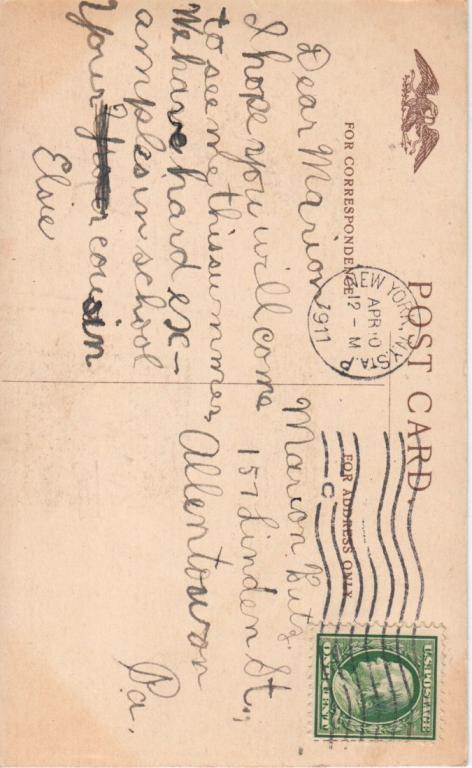 POST CARD.
FOR CORRESPONDENCE
FOR ADDRESS ONLY
NEW YORK, N.Y. STA. R
APR 10
12-M
1911
C
U.S. POSTAGE
ONE CENT
Dear Marion
I hope you will come
to see me this summer,
We have hard ex-
amples in school
Your cousin
Elsie
Marion
157 Linden St.,
Allentown
Pa.